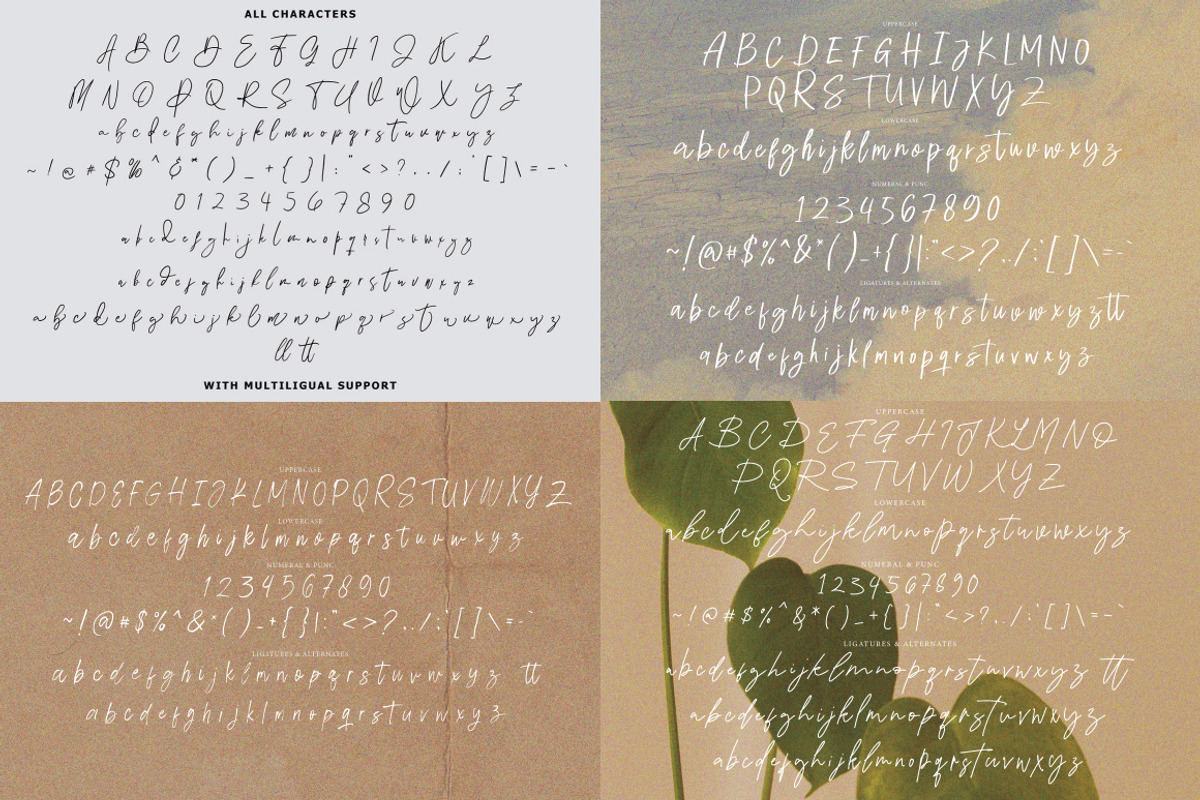 ALL CHARACTERS
A B C D E F G H I J K L
M N O P Q R S T U V W X Y Z
a b c d e f g h i j k l m n o p q r s t u v w x y z
~ ! @ # $ % ^ & * ( ) _ + { } | : " < > ? . . / ; ' [ ] \ = - `
0 1 2 3 4 5 6 7 8 9 0
a b c d e f g h i j k l m n o p q r s t u v w x y z
a b c d e f g h i j k l m n o p q r s t u v w x y z
a b c d e f g h i j k l m n o p q r s t u v w x y z
ll tt
WITH MULTILIGUAL SUPPORT
UPPERCASE
ABCDEFGHIJKLMNO
PQRSTUVWXYZ
LOWERCASE
abcdefghijklmnopqrstuvwxyz
NUMERAL & PUNC
1234567890
~!@#$%^&*()_+{}|:"<>?../;'[]\=-`
LIGATURES & ALTERNATES
abcdefghijklmnopqrstuvwxyztt
abcdefghijklmnopqrstuvwxyz
UPPERCASE
ABCDEFGHIJKLMNOPQRSTUVWXYZ
LOWERCASE
abcdefghijklmnopqrstuvwxyz
NUMERAL & PUNC
1234567890
~!@#$%^&*()_+{}|:"<>?../;'[]\=-`
LIGATURES & ALTERNATES
abcdefghijklmnopqrstuvwxyz tt
abcdefghijklmnopqrstuvwxyz
UPPERCASE
ABCDEFGHIJKLMNO
PQRSTUVWXYZ
LOWERCASE
abcdefghijklmnopqrstuvwxyz
NUMERAL & PUNC
1234567890
~!@#$%^&*()_+{}|:"<>?../;'[]\=-`
LIGATURES & ALTERNATES
abcdefghijklmnopqrstuvwxyz tt
abcdefghijklmnopqrstuvwxyz
abcdefghijklmnopqrstuvwxyz